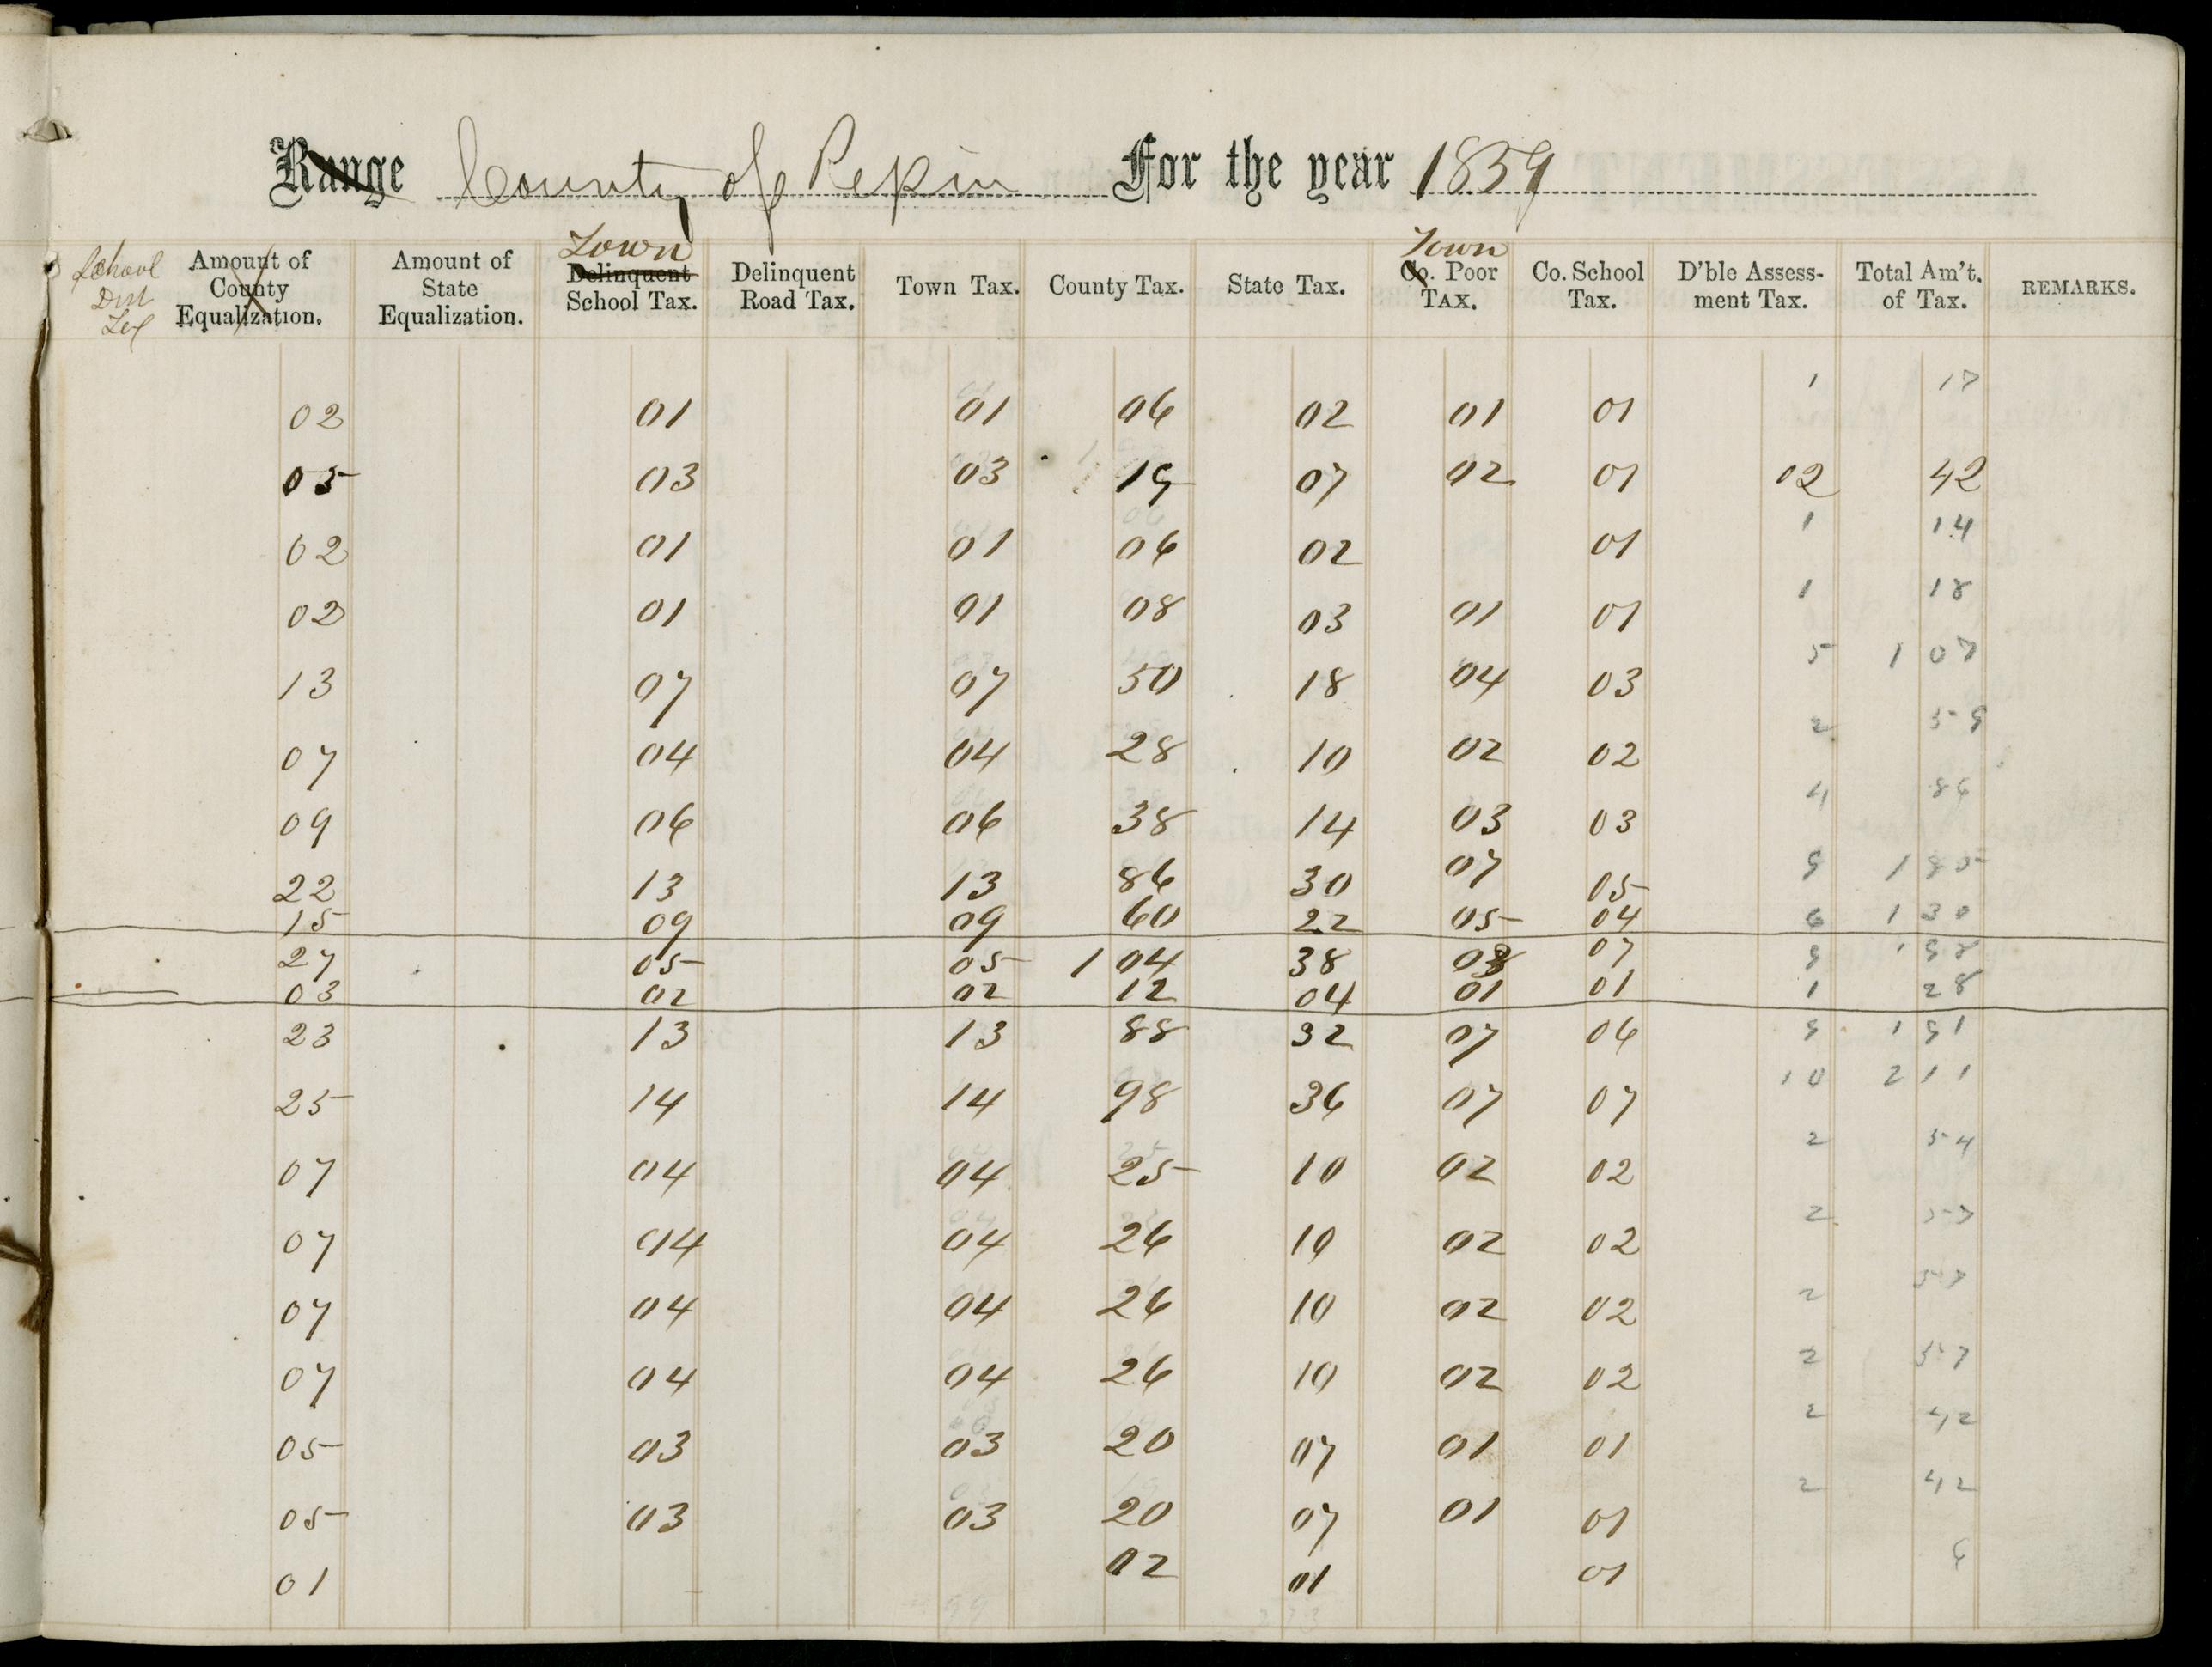 Range County of Pepin For the year 1859
School Dist Amount of County Equalization. Amount of State Equalization. Town Delinquent School Tax. Delinquent Road Tax. Town Tax. County Tax. State Tax. Town Co. Poor TAX. Co. School Tax. D'ble Assess-ment Tax. Total Am't. of Tax. REMARKS.
02 01 01 06 02 01 01 1 17
05 03 03 19 07 02 01 02 42
02 01 01 06 02 01 1 14
02 01 01 08 03 01 01 1 18
13 07 07 50 18 04 03 5 1 07
07 04 04 28 10 02 02 2 59
09 06 06 38 14 03 03 4
22 13 13 86 30 07 05 9 1 85
15 09 09 60 22 05 04 6 1 30
27 05 05 1 04 38 07 9 1 98
03 02 02 12 04 01 01 1 28
23 13 13 88 32 07 06 9 1 91
25 14 14 98 36 07 07 10 2 11
07 04 04 25 10 02 02 2 54
07 04 04 26 10 02 02 2 57
07 04 04 26 10 02 02 2 57
07 04 04 26 10 02 02 2 57
05 03 03 20 07 01 01 2 42
05 03 03 20 07 01 01 2 42
01 02 01 01